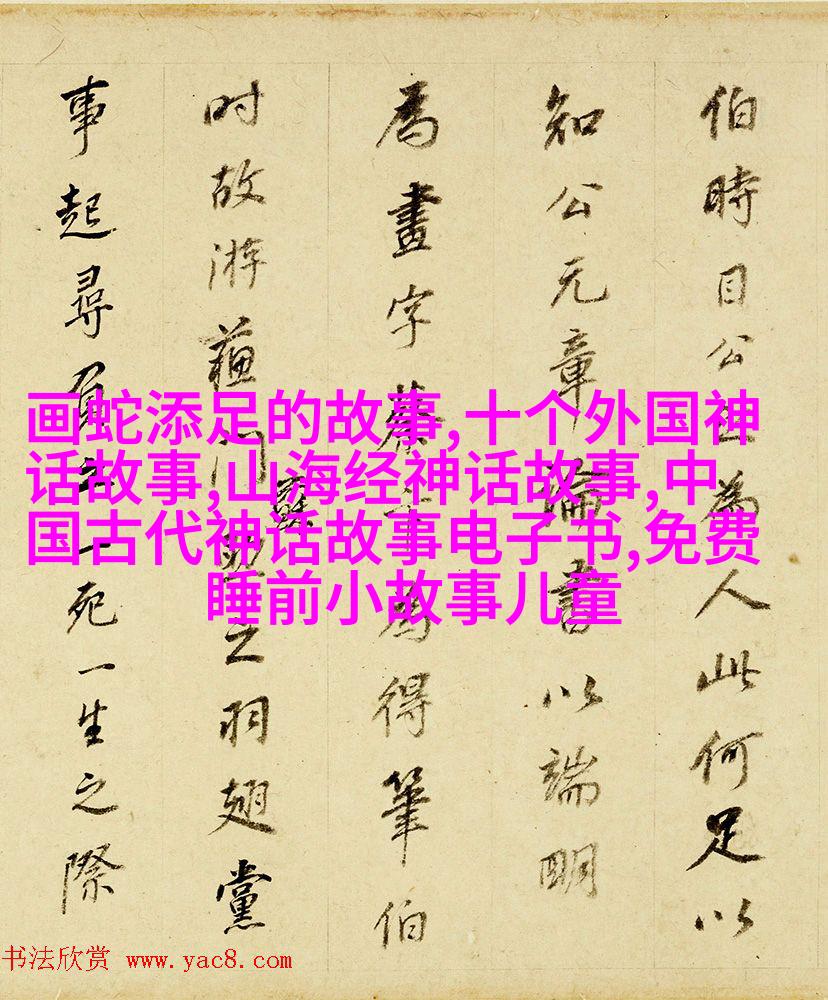 伯時目公為人此何足以
知公元章論書以端明
為畫字蔡為得筆伯
时故游蘓门之羽翅黨
事起尋一死一生之際
画蛇添足的故事,十个外国神
话故事,山海经神话故事,中
国古代神话故事电子书,免费
睡前小故事儿童
书法欣赏 www.yac8.com